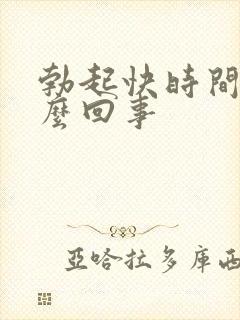 勃起快時間
麼回事
亞哈拉多庫西